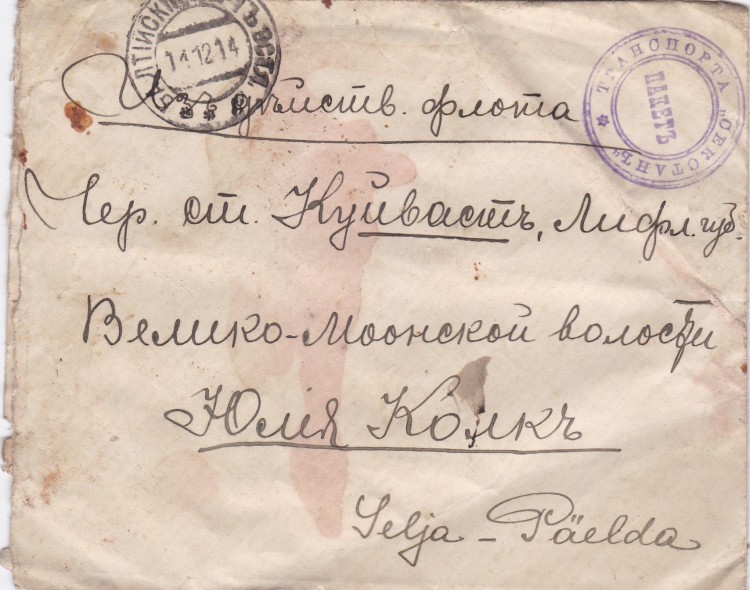 14 12 14
ТРАНСПОРТА „СЕКСТАНЪ“
ПАКЕТЪ
Изъ дѣйств. флота
Чер. ст. Куйвастъ, Лифл. губ.
Велико-Моонской волости
Юлія Колкъ
Selja - Päelda